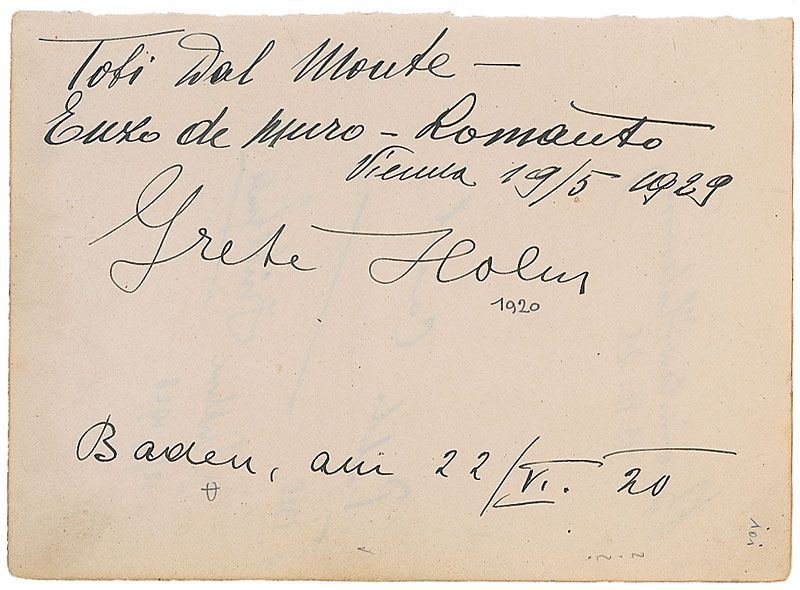 Toti Dal Monte –
Enzo de Muro – Lomanto
Vienna 19/5 1929
Grete Holm
1920
Baden, am 22/VI. 20
101